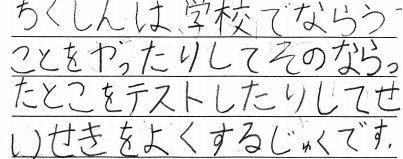 ちくしんは学校でならう
ことをやったりしてそのならっ
たとこをテストしたりしてせ
いせきをよくするじゅくです.